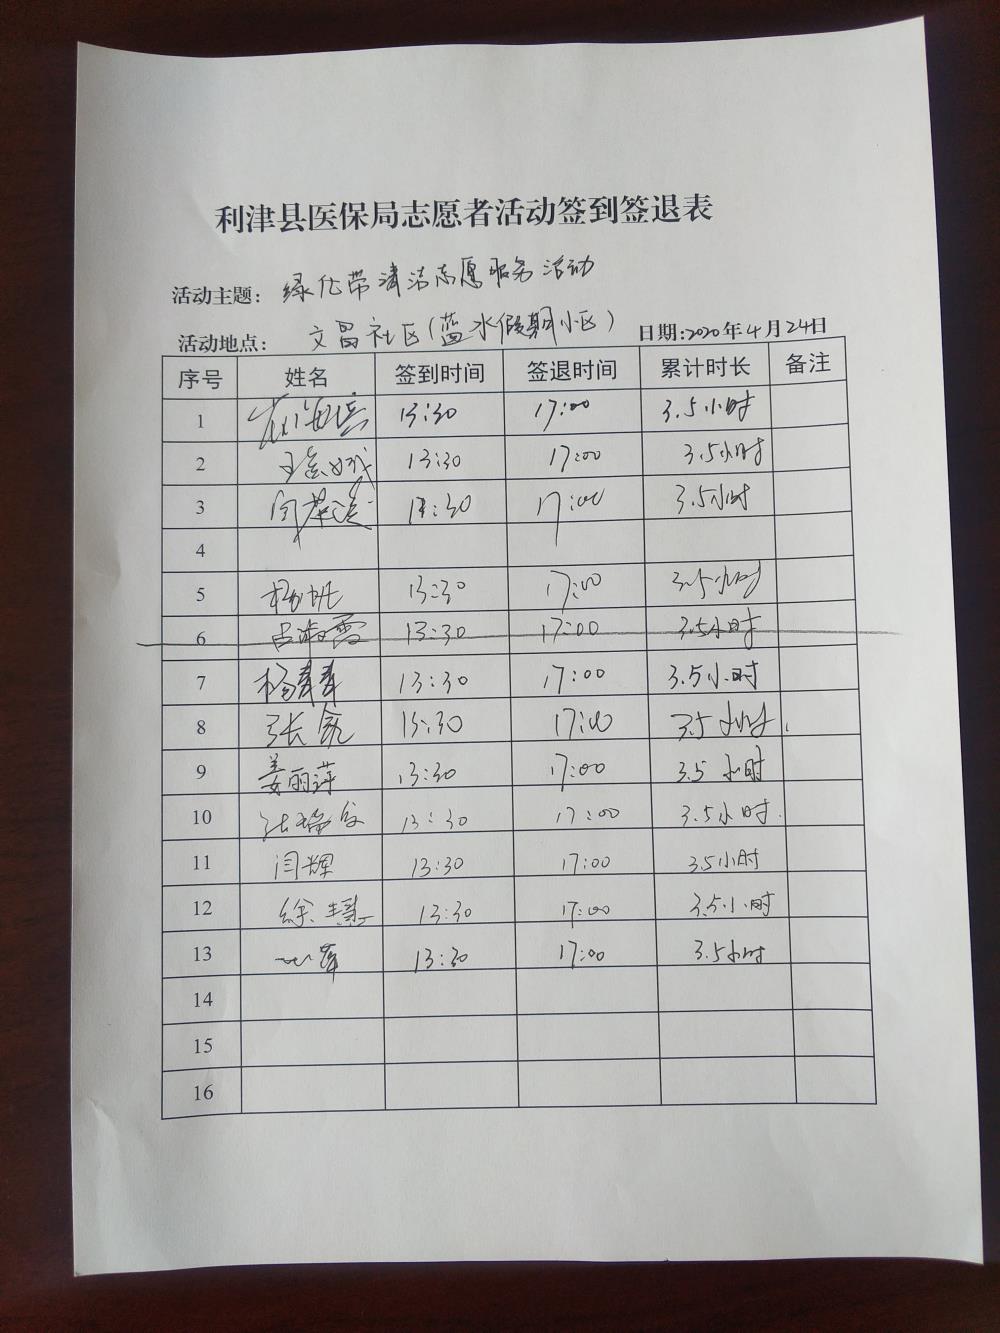 利津县医保局志愿者活动签到签退表
活动主题：绿化带清洁志愿服务活动
活动地点：文昌社区（蓝水假期小区） 日期:2020年4月24日
序号 姓名 签到时间 签退时间 累计时长 备注
1 13:30 17:00 3.5小时
2 13:30 17:00 3.5小时
3 13:30 17:00 3.5小时
4
5 杨帆 13:30 17:00 3.5小时
6 13:30 17:00 3.5小时
7 杨青青 13:30 17:00 3.5小时
8 13:30 17:00 3.5小时
9 姜丽萍 13:30 17:00 3.5小时
10 13:30 17:00 3.5小时.
11 闫辉 13:30 17:00 3.5小时
12 徐慧 13:30 17:00 3.5小时
13 13:30 17:00 3.5小时
14
15
16